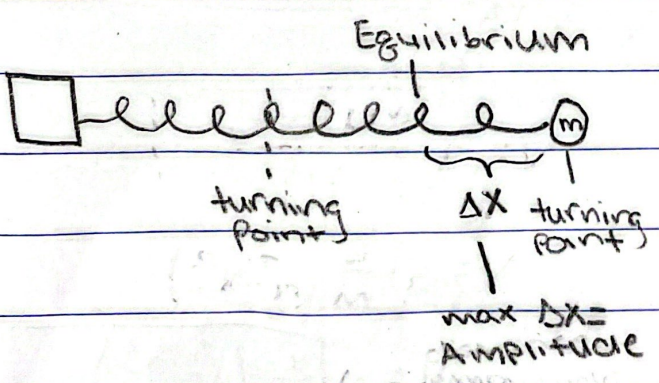 Equilibrium
m
turning
point
ΔX
turning
point
max ΔX=
Amplitude